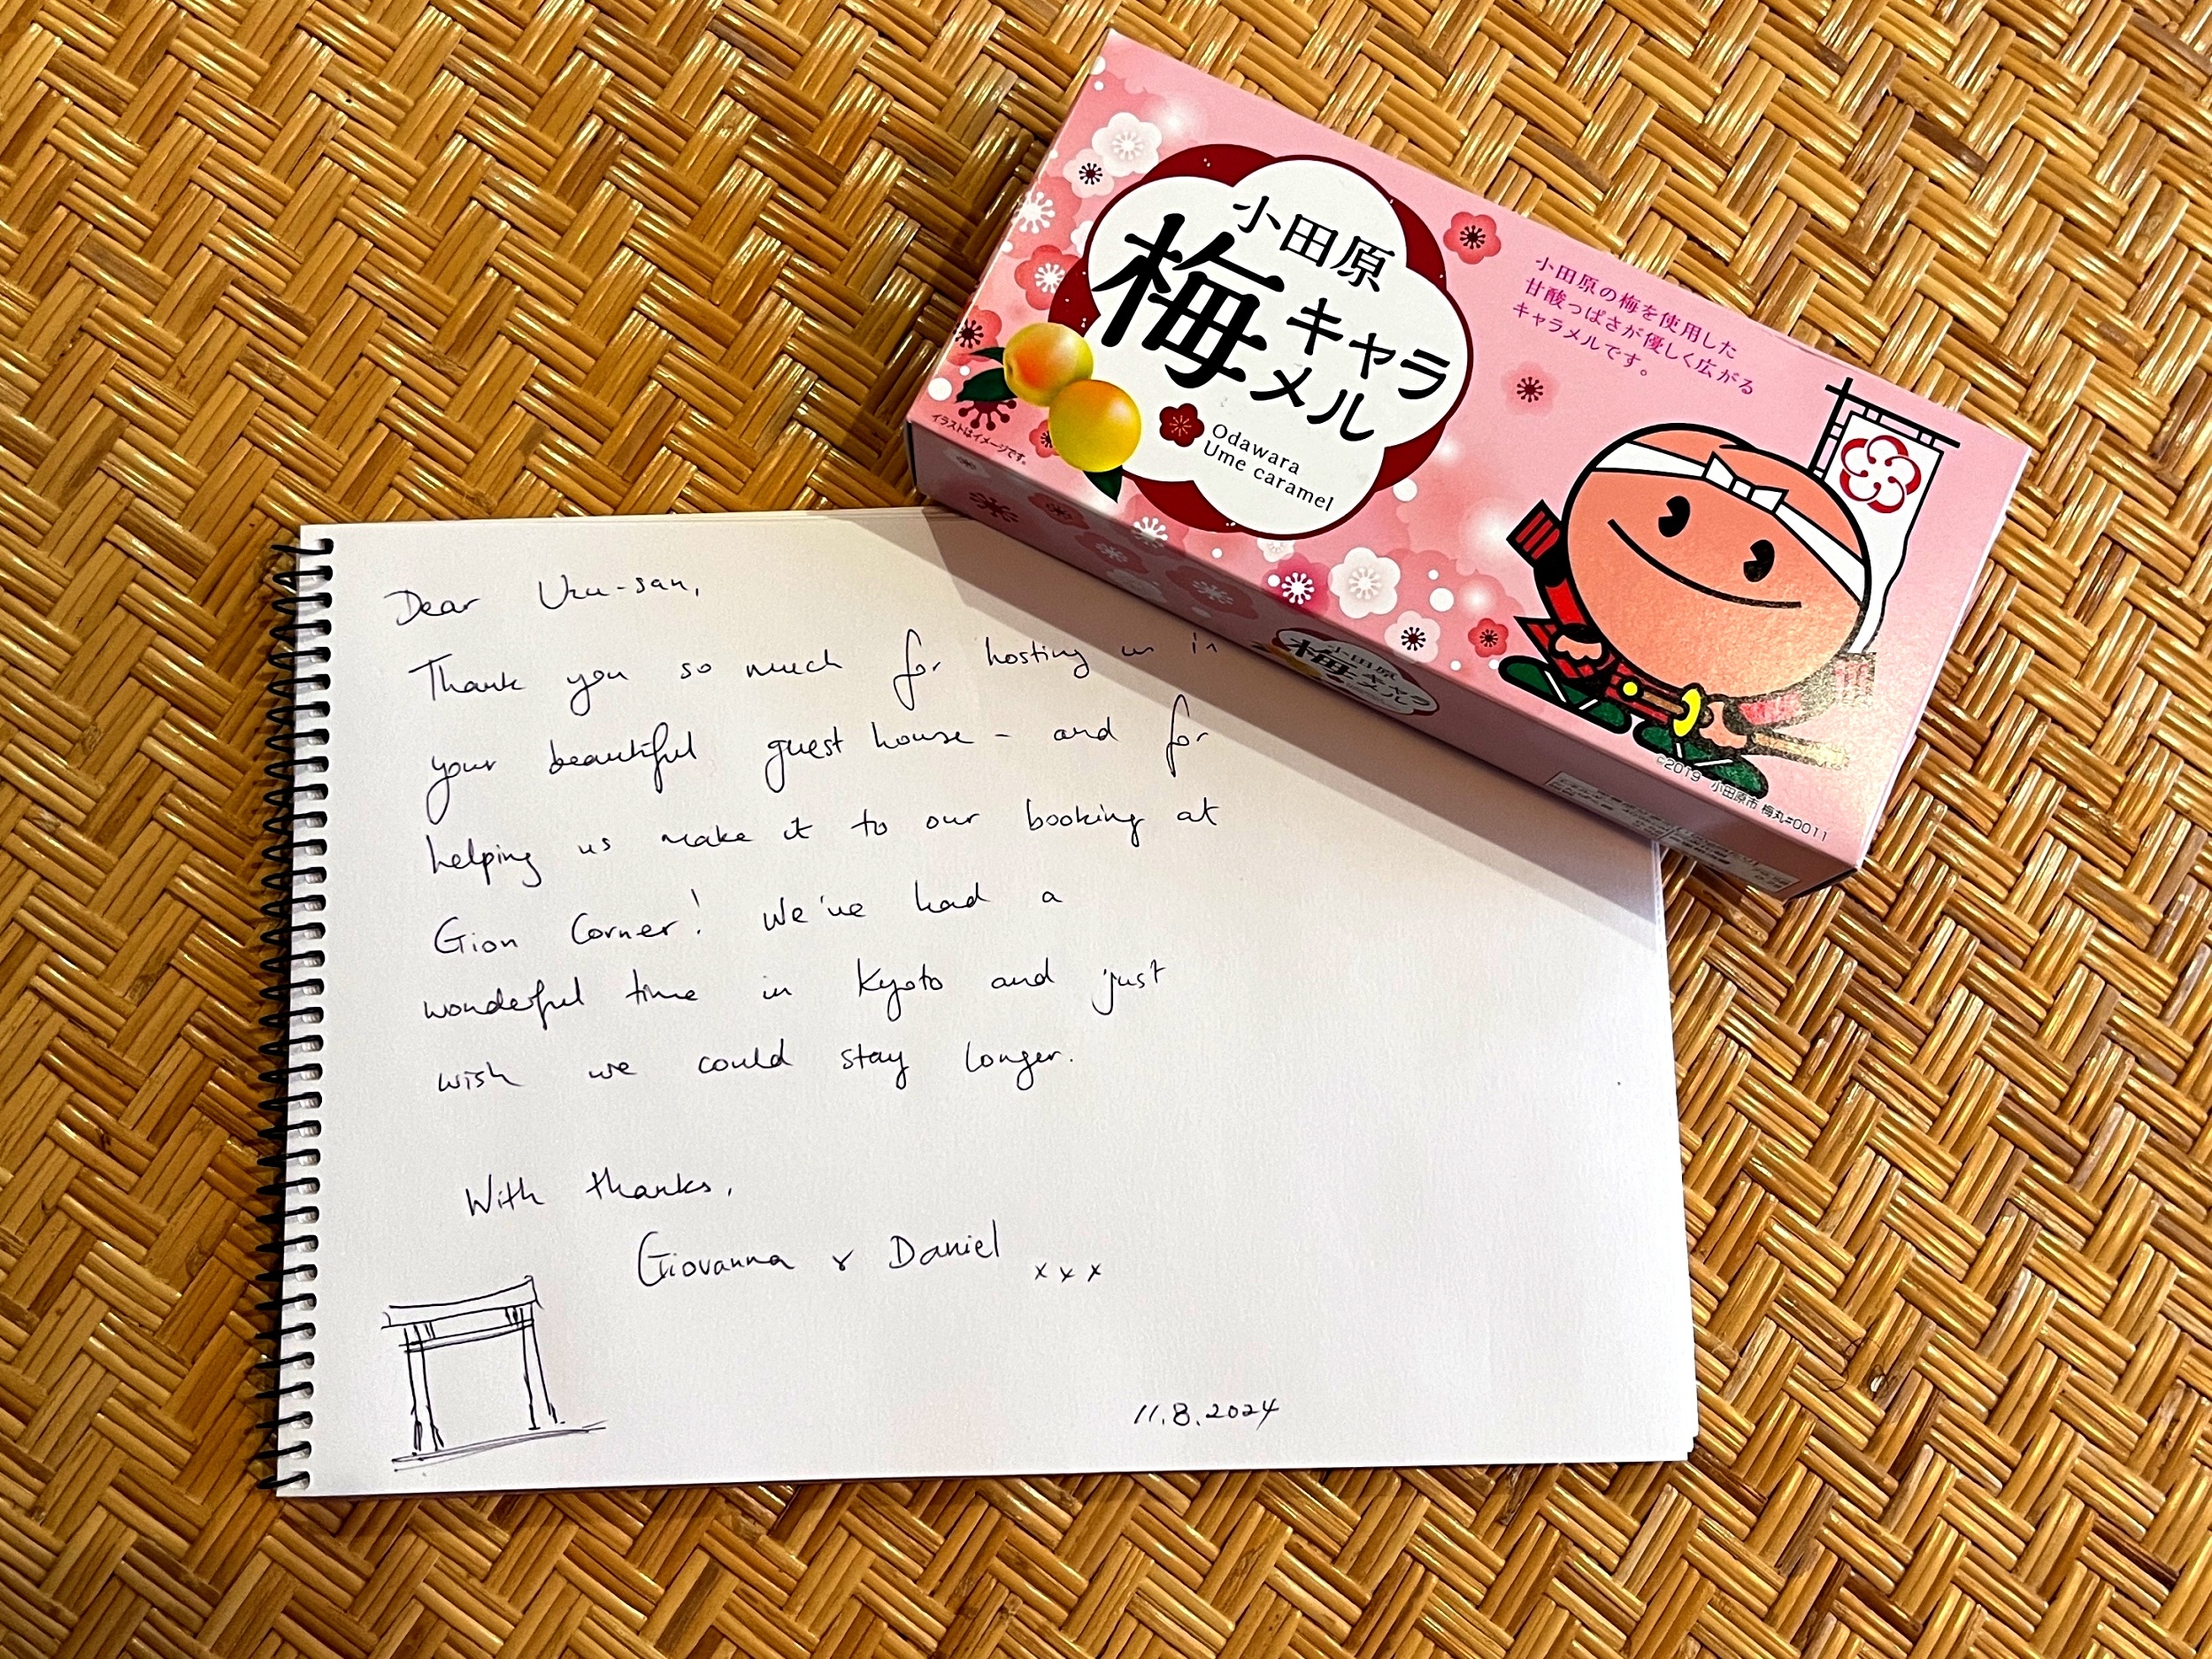 小田原
梅キャラメル
Odawara
Ume caramel
小田原の梅を使用した
甘酸っぱさが優しく広がる
キャラメルです。
イラストはイメージです。
©2019 小田原市 梅丸#0011
小田原
梅キャラメル
Dear Uzu-san,
Thank you so much for hosting us in
your beautiful guest house - and for
helping us make it to our booking at
Gion Corner! We've had a
wonderful time in Kyoto and just
wish we could stay longer.
With thanks,
Giovanna & Daniel xxx
11.8.2024